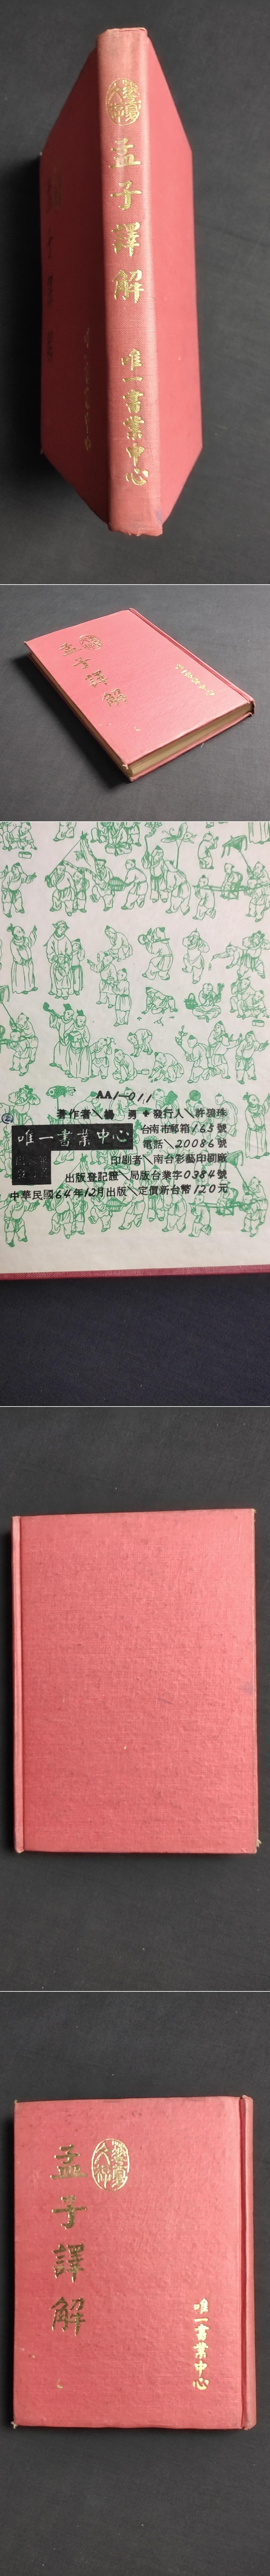 孟子譯解
唯一書業中心
孟子譯解
AA1-011
著作者╲楊 勇✦發行人╲許碧珠
唯一書業中心
台南市郵箱165號
電話╱20086號
印刷者╲南台彩藝印刷廠
出版登記證╱局版台業字0384號
中華民國64年12月出版╲定價新台幣120元
孟子譯解
唯一書業中心